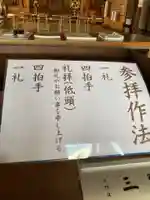 参拝作法
一礼
四拍手
礼拝(低頭)
四拍手
一礼
三